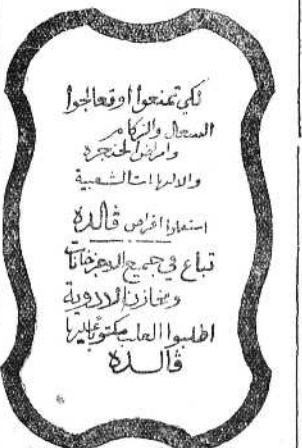 لكي تمنعوا اوتعالجوا
السعال والزكام
وامراض الحنجره
والالتهابات الشعبية
استعملوا اقراص ڤالده
تباع في جميع الاجزخانات
ومخازن الادوية
اطلبوا العلب مكتوبا عليها
ڤالده